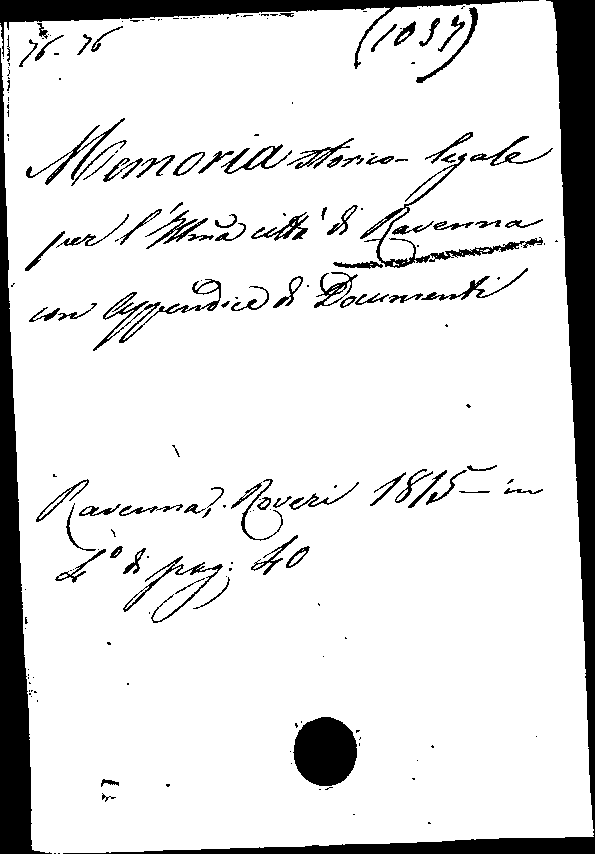 76-76 (1037)
Memoria storico-legale
per l'Illma città di Ravenna
con Appendice di Documenti
Ravenna, Roveri 1815 - in
4° di pag: 40